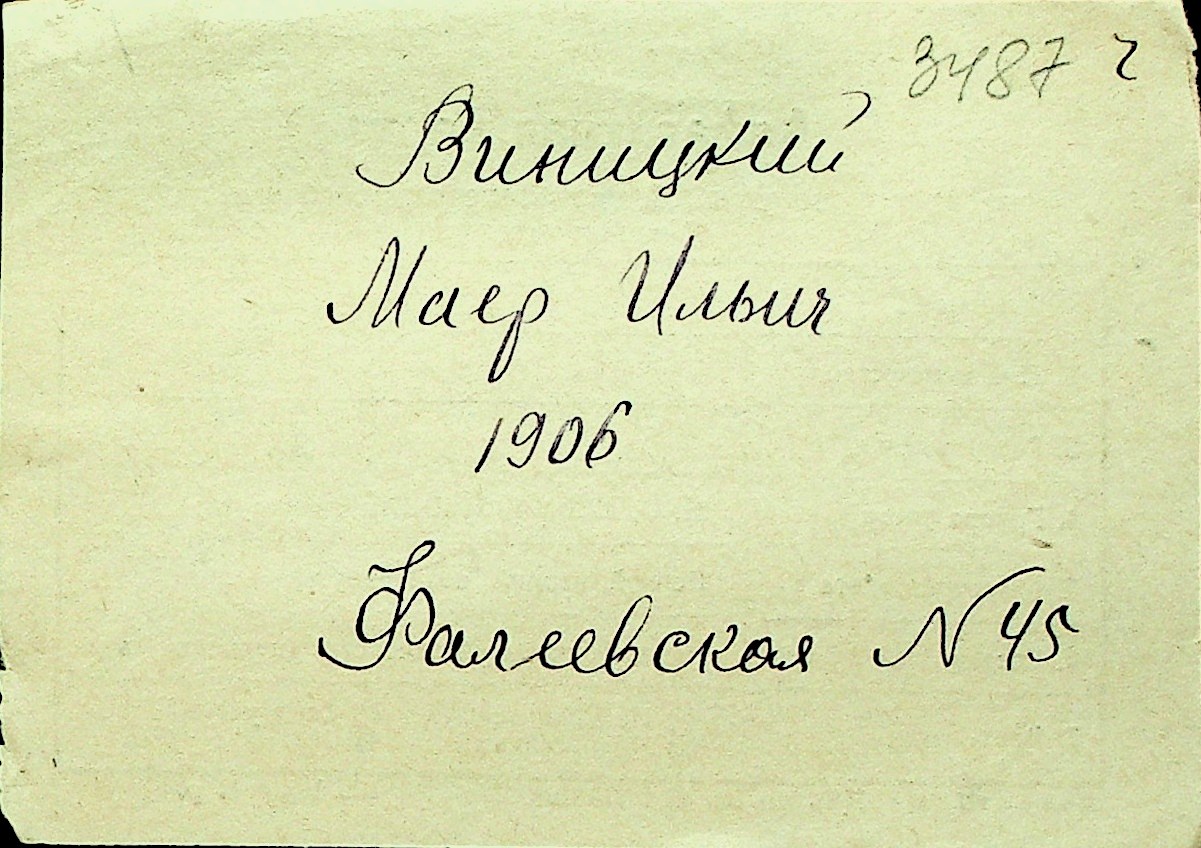 3487 ч
Виницкий
Маер Ильич
1906
Фалеевская N 45